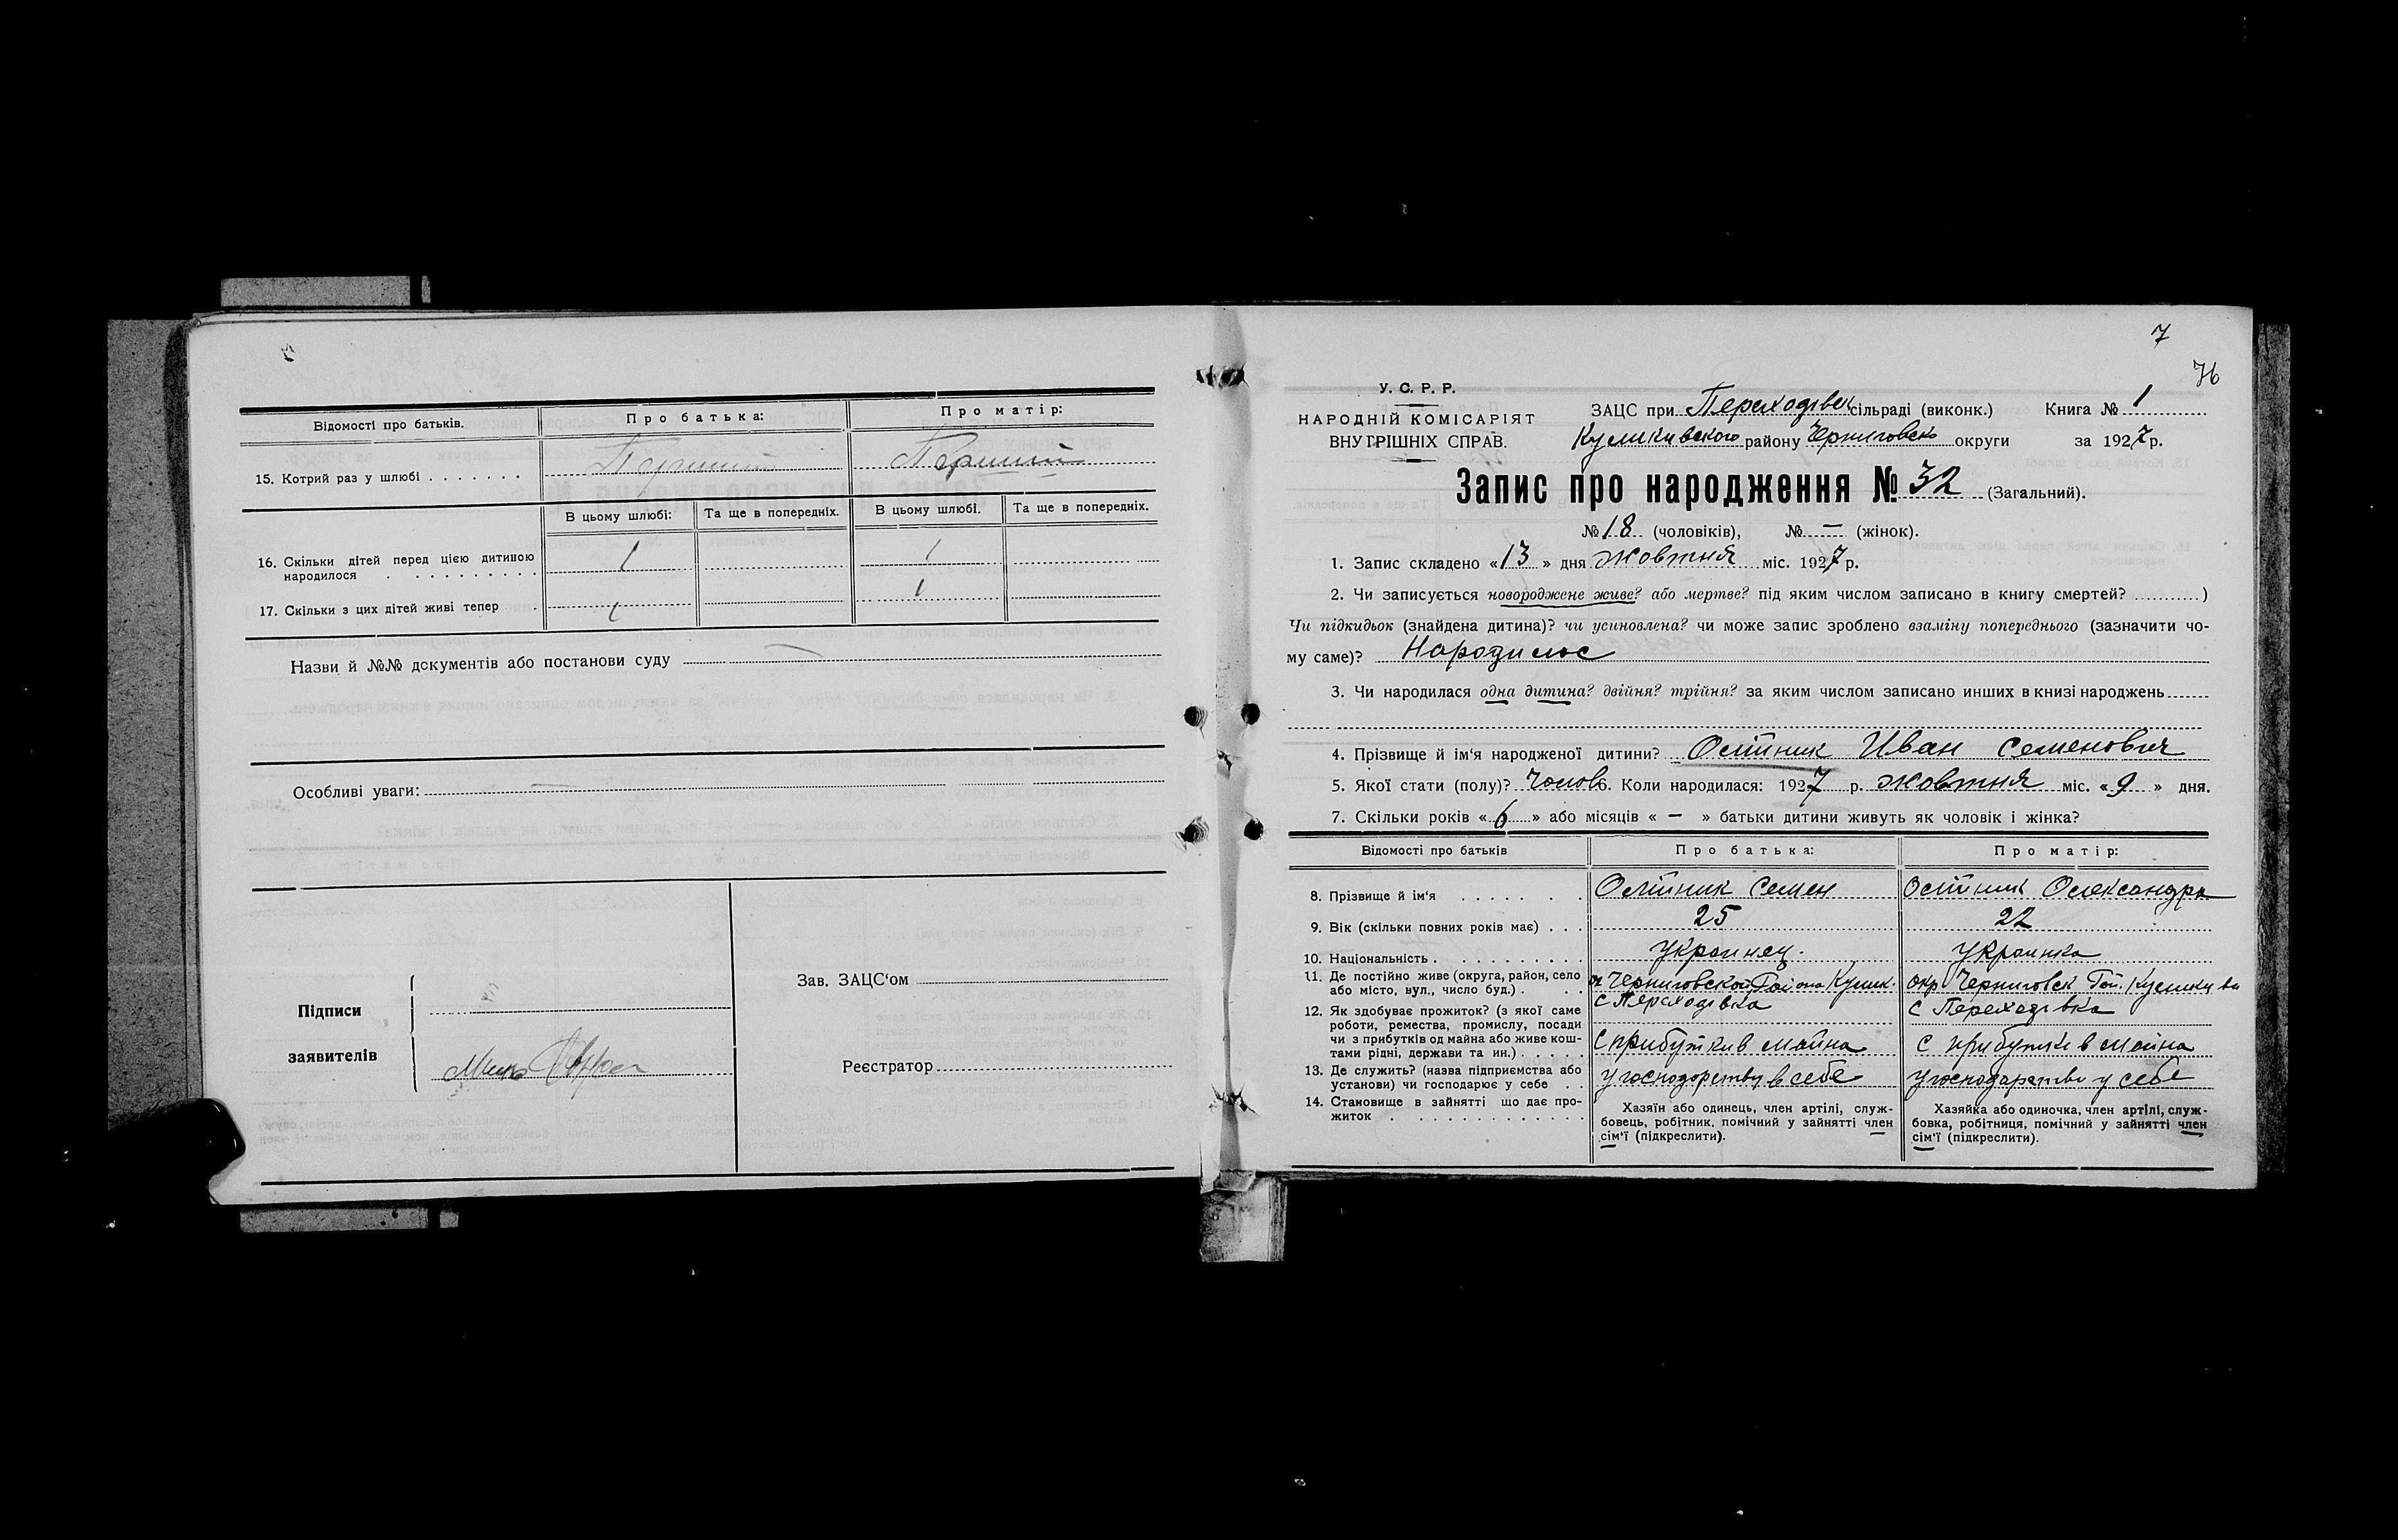 Відомості про батьків. Про батька: Про матір:
15. Котрий раз у шлюбі . . . . . . . Перший Перший
В цьому шлюбі: Та ще в попередніх. В цьому шлюбі. Та ще в попередніх.
16. Скільки дітей перед цією дитиною
народилося . . . . . . . . . . 1 1
17. Скільки з цих дітей живі тепер . 1 1
Назви й №№ документів або постанови суду —
Особливі уваги: —
Зав. ЗАЦС'ом
Підписи
заявителів
Реєстратор
7
76
У. С. Р. Р.
НАРОДНІЙ КОМІСАРІЯТ
ВНУТРІШНІХ СПРАВ.
ЗАЦС при Переходівск сільраді (виконк.) Книга № 1
Куликивского району Черниговско округи за 1927 р.
Запис про народження № 32 (Загальний).
№ 18 (чоловіків), № — (жінок).
1. Запис складено «13» дня жовтня міс. 1927 р.
2. Чи записується новороджене живе? або мертве? під яким числом записано в книгу смертей? ...........)
Чи підкидьок (знайдена дитина)? чи усиновлена? чи може запис зроблено взаміну попереднього (зазначити чо-
му саме)? Народилос
3. Чи народилася одна дитина? двійня? трійня? за яким числом записано инших в книзі народжень
4. Прізвище й ім'я народженої дитини? Олійник Иван Семенович
5. Якої стати (полу)? Чолов 6. Коли народилася: 1927 р. жовтня міс. «9» дня.
7. Скільки років «6» або місяців « — » батьки дитини живуть як чоловік і жінка?
Відомості про батьків Про батька: Про матір:
8. Прізвище й ім'я . . . . . . . Олійник Семен Олійник Олександра
9. Вік (скільки повних років має) . . . 25 22
10. Національність . . . . . . . . . . Украинец. Украинка
11. Де постійно живе (округа, район, село
або місто, вул., число буд.) . . . Черниговской Района Кулик. окр Черниговск Рай. Куликив
с Переходівка с Переходівка
12. Як здобуває прожиток? (з якої саме
роботи, ремества, промислу, посади
чи з прибутків од майна або живе кош-
тами рідні, держави та ин.) . . . . . С прибутків майна с прибутків майна
13. Де служить? (назва підприємства або
установи) чи господарює у себе . . у господарству в себе у господарстви у себе
14. Становище в зайнятті що дає про-
житок . . . . . . . . . . . . . .
Хазяїн або одинець, член артілі, служ-
бовець, робітник, помічний у зайнятті член
сім'ї (підкреслити).
Хазяйка або одиночка, член артілі, служ-
бовка, робітниця, помічний у зайнятті член
сім'ї (підкреслити).